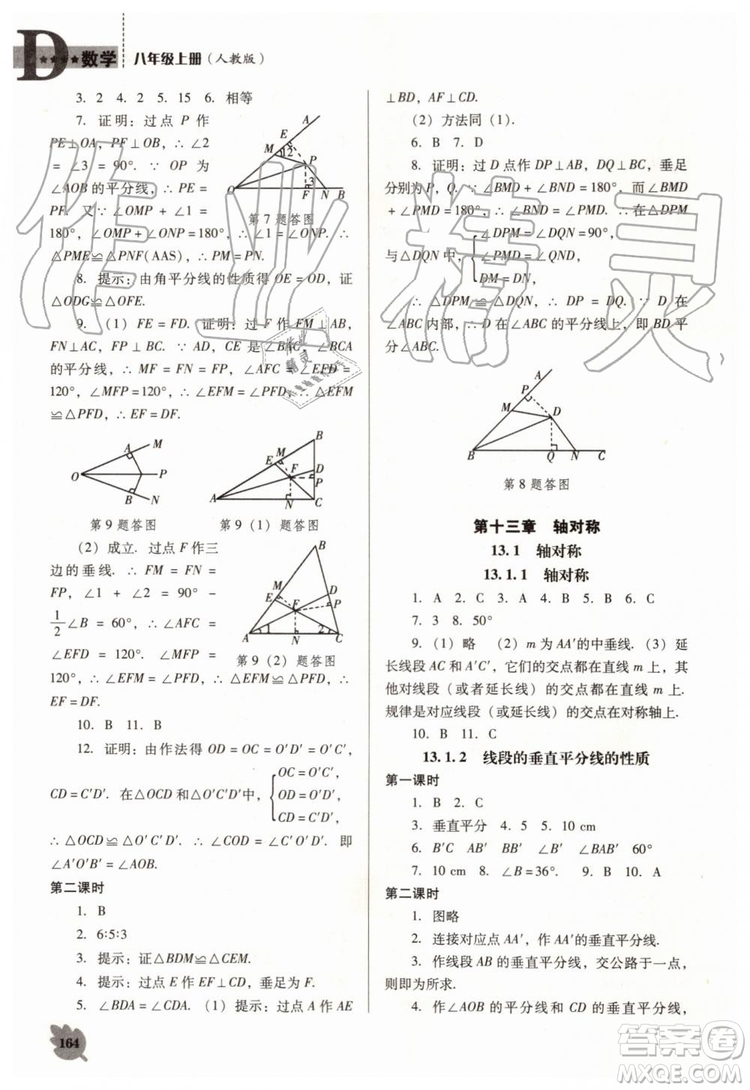 D
数学
八年级上册（人教版）
3. 2  4. 2  5. 15  6. 相等
7. 证明：过点 P 作
PE⊥OA，PF⊥OB，∴ ∠2
=∠3 = 90°. ∵ OP 为
∠AOB 的平分线，∴ PE =
PF. 又∵ ∠OMP + ∠1 =
180°，∠OMP + ∠ONP = 180°，∴ ∠1 = ∠ONP. ∴
△PME≌△PNF(AAS)，∴ PM = PN.
A
E
M
1
2
P
3
O
F
N
B
第 7 题答图
8. 提示：由角平分线的性质得 OE = OD，证
△ODG≌△OFE.
9. （1）FE = FD. 证明：过 F 作 FM⊥AB，
FN⊥AC，FP⊥BC，∵ AD，CE 是角平分线，
∠BAC = 30°，∴ MF = FN = FP，∠AFC = ∠EFD =
120°，∠MFP = 120°，∴ ∠EFM = ∠PFD，∴ △EFM
≌△PFD，∴ EF = DF.
A
M
O
P
B
N
第 9 题答图
B
M
E
D
F
P
A
N
C
第 9（1）题答图
（2）成立. 过点 F 作三
边的垂线. ∴ FM = FN =
FP，∵ ∠1 + ∠2 = 90° −
1/2∠B = 60°，∴ ∠AFC =
∠EFD = 120°. ∴ ∠MFP =
120°，∴ ∠EFM = ∠PFD，∴ △EFM≌△PFD，∴
EF = DF.
B
M
D
E
F
P
A
1
2
N
C
第 9（2）题答图
10. B  11. B
12. 证明：由作法得 OD = OC = O′D′ = O′C′，
CD = C′D′. 在△OCD 和△O′C′D′中，
OC = O′C′，
OD = O′D′，
CD = C′D′，
∴ △OCD≌△O′C′D′. ∴ ∠COD = ∠C′O′D′. 即
∠A′O′B′ = ∠AOB.
第二课时
1. B
2. 6∶5∶3
3. 提示：证△BDM≌△CEM.
4. 提示：过点 E 作 EF⊥CD，垂足为 F.
5. ∠BDA = ∠CDA. （1）提示：过点 A 作 AE
164
⊥BD，AF⊥CD.
（2）方法同（1）.
6. B  7. D
8. 证明：过 D 点作 DP⊥AB，DQ⊥BC，垂足
分别为 P，Q. ∵ ∠BMD + ∠BND = 180°，而∠BMD
+ ∠PMD = 180°，∴ ∠DNQ = ∠PMD. 在△DPM
与△DQN 中，
∠DPM = ∠DQN = 90°，
∠PMD = ∠DNQ，
DM = DN.
∴ △DPM≌△DQN，∴ DP = DQ. ∵ 点 D 在
∠ABC 内部，∴ D 在∠ABC 的平分线上，即 BD 平分
∠ABC.
A
P
M
D
B
Q
N
C
第 8 题答图
第十三章 轴对称
13.1 轴对称
13.1.1 轴对称
1. A  2. C  3. C  4. A  5. C  6. A
7. 3  8. 50°
9. （1）略 （2）m 为 AA′的中垂线. （3）延
长线段 AC 和 A′C′，它们的交点都在直线 m 上，其
他对线段（或者延长线）的交点都在直线 m 上.
规律是对应线段（或延长线）的交点在对称轴上.
10. B  11. C
13.1.2 线段的垂直平分线的性质
第一课时
1. B  2. C
3. 垂直平分  4. 5  5. 10 cm
6. B′C′  AB′  BB′  AB  60°
7. 10 cm  8. ∠B = 36°.  9. B  10. A
第二课时
1. 图略
2. 连接对应点 AA′，作 AA′的垂直平分线.
3. 作线段的垂直平分线，交公路于一点，
则即为所求.
4. 作∠AOB 的平分线，CD 的垂直平分线，
作业精灵
作业精灵
答案圈
MXQE.COM